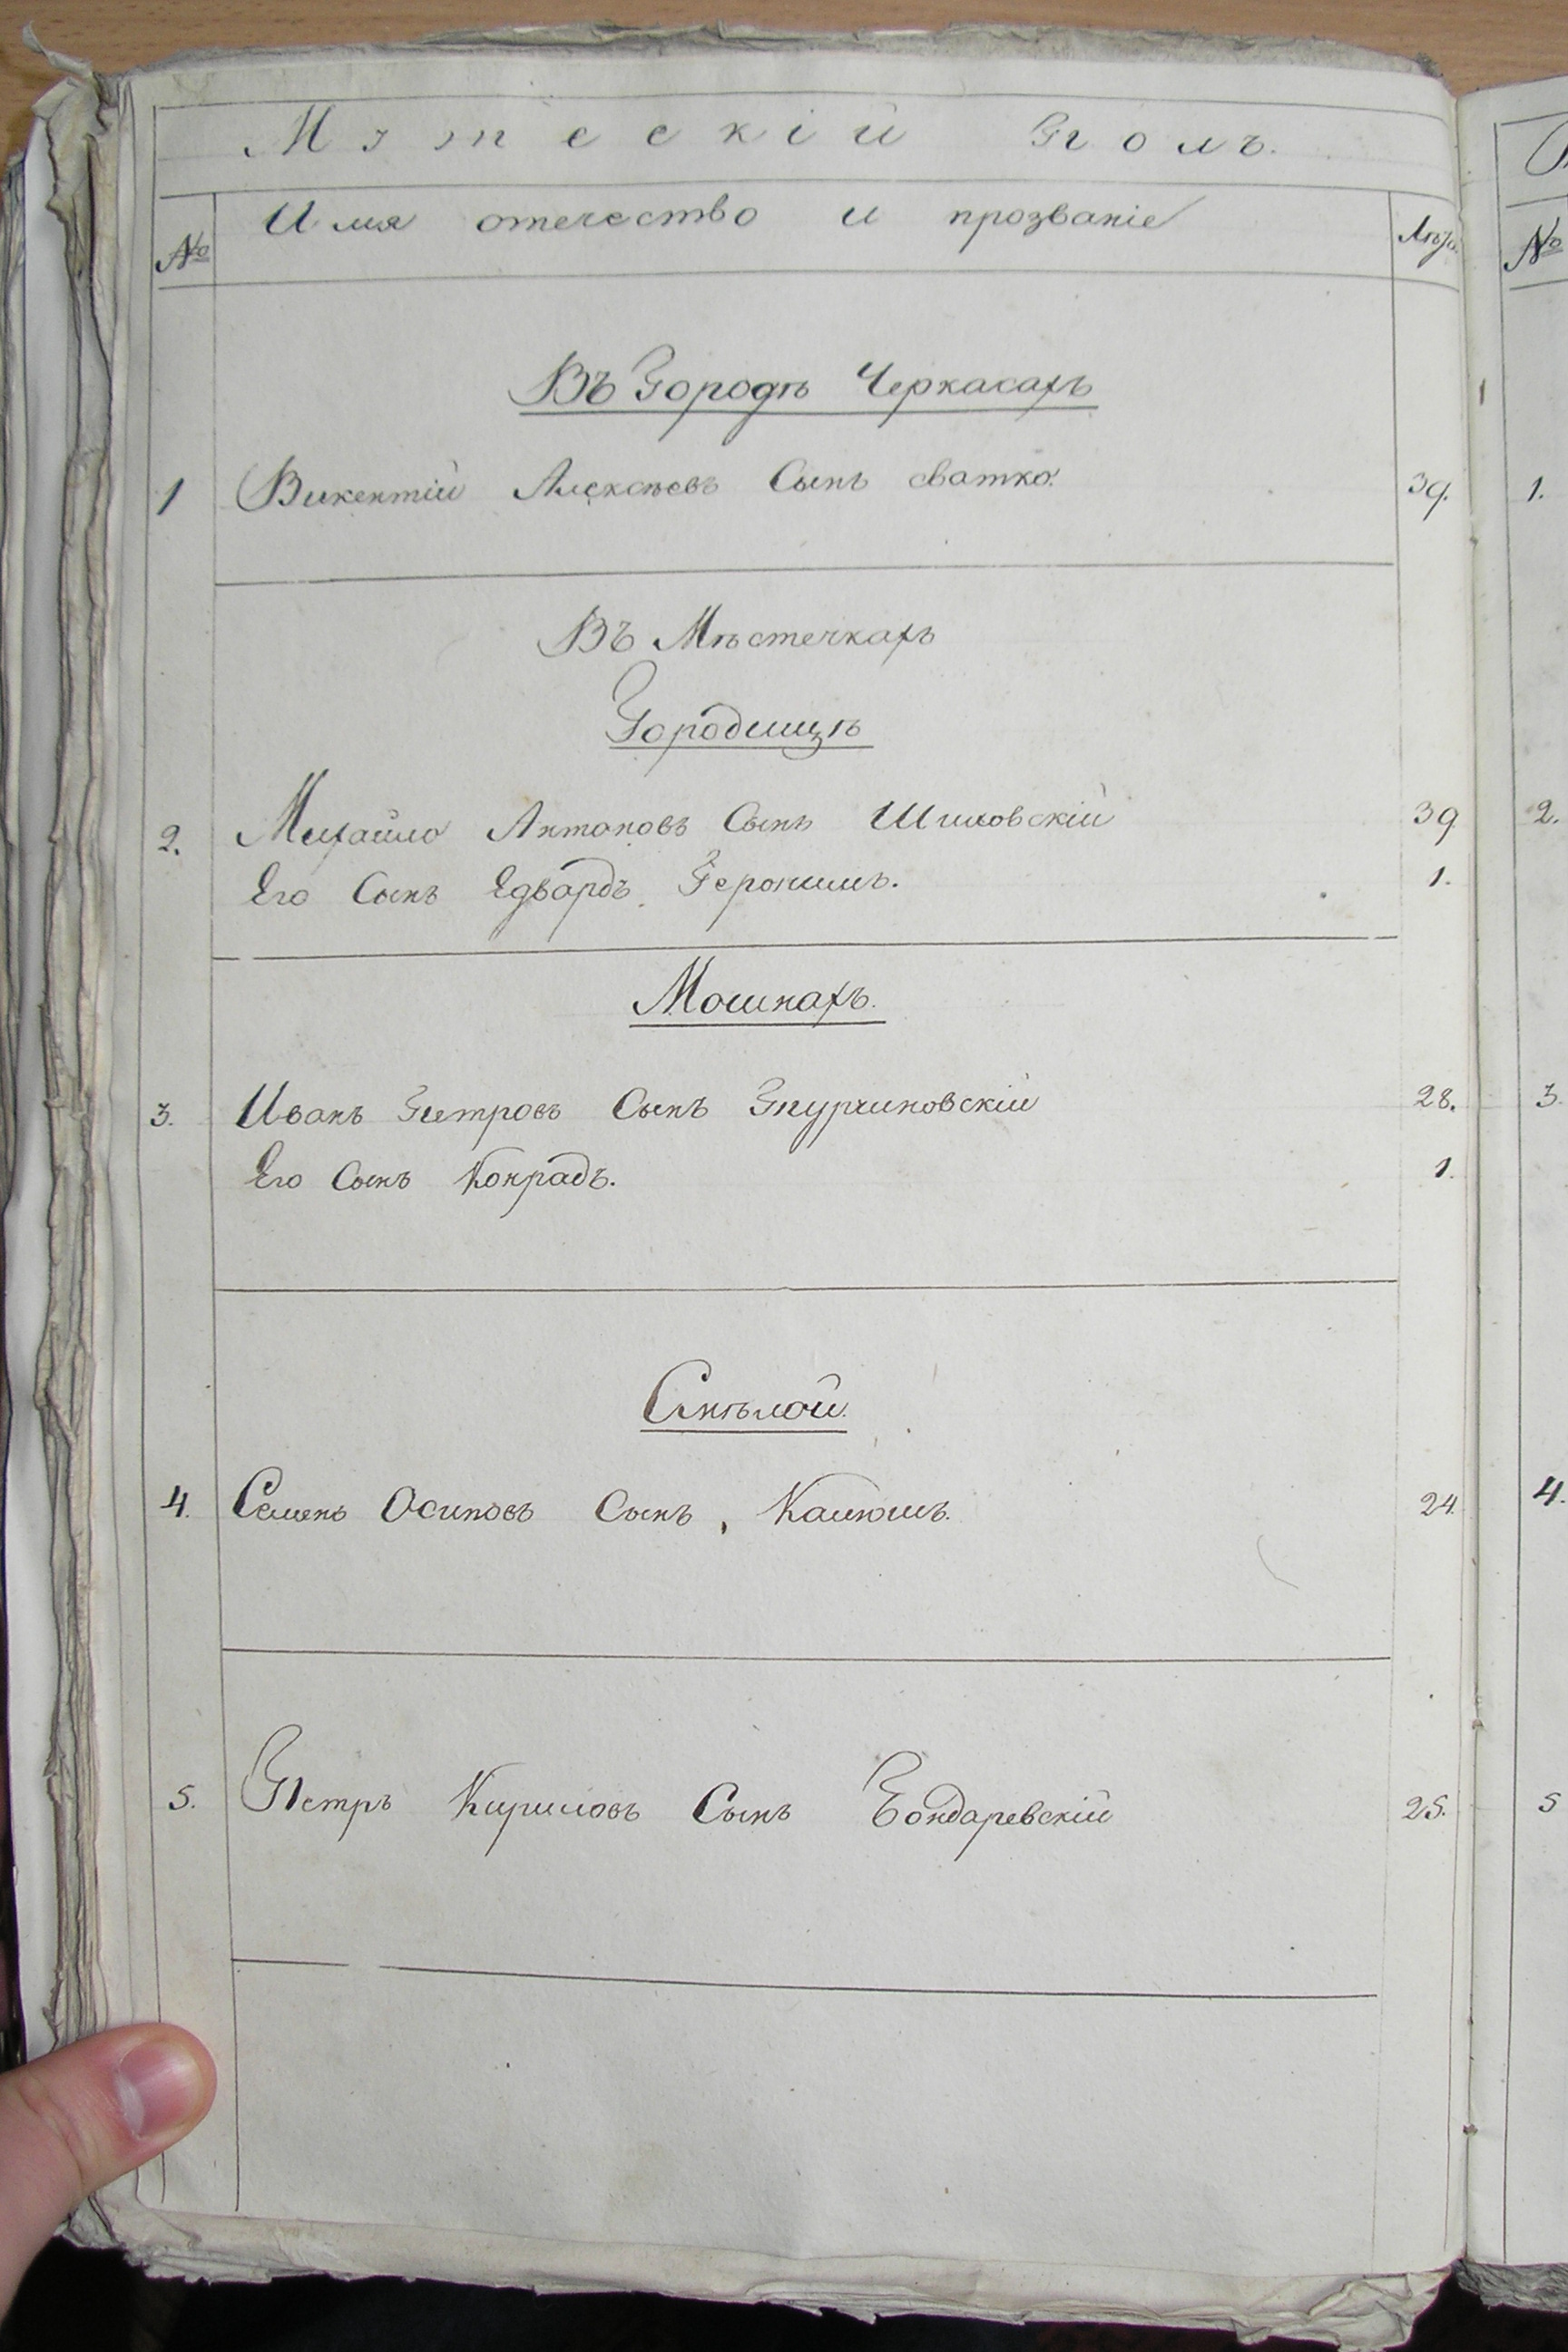 Мужескій Полъ.
№ Имя отечество и прозваніе Лѣта
Въ Городѣ Черкасахъ
1 Викентій Алексѣевъ Сынъ сватко. 39.
Въ Мѣстечкахъ
Городищѣ
2. Михайло Антоновъ Сынъ Шиловскій 39
Его Сынъ Едвардъ Героницъ. 1.
Мошнахъ.
3. Иванъ Петровъ Сынъ 28.
Его Сынъ Конрадъ. 1.
Смѣлой.
4. Семенъ Осиповъ Сынъ 24.
5. Петръ Кириловъ Сынъ Бондаревскій 25.
№
1.
2.
3.
4.
5